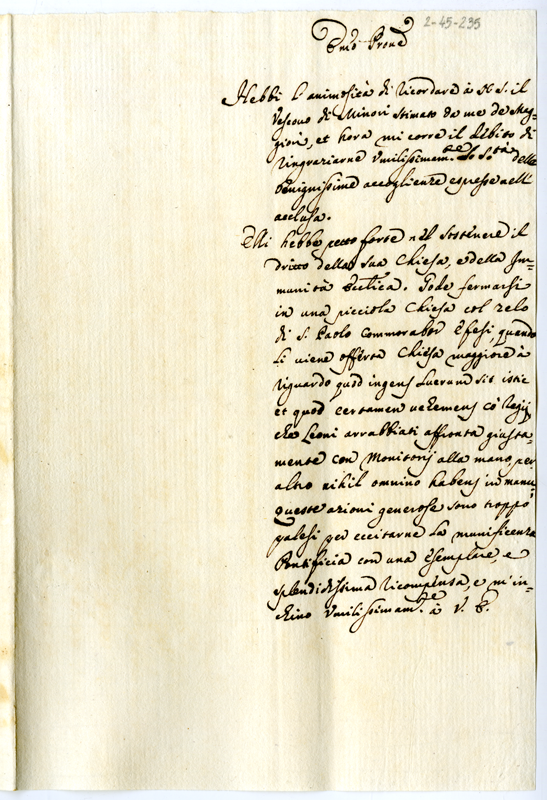 2-45-235
Em.o Prone
Hebbi l'animosità di ricordare à N. S. il
Vescovo di Minori stimato da me de Mag-
giori, et hora mi corre il debito di
ringraziarne Umilissimam.te S. S.tà delle
benignissime accoglienze espresse nell'
acclusa.
Egli hebbe petto forte nel sostenere il
dritto della sua Chiesa, e della Im-
munità Eccl.ica. Gode fermarsi
in una picciola Chiesa col zelo
di S. Paolo Commorabor Efesi, quando
li viene offerta Chiesa maggiore à
riguardo quod ingens Lucrum sit istic
et quod certamen vehemens cõ Regij,
che Leoni arrabbiati affronta giusta-
mente con Monitorij alla mano, per
altro nihil omnino habens in manu,
queste azioni generose sono troppo
palesi per eccitarne la munificenza
Pontificia con una esemplare, e
splendidissima ricompensa, e m'in-
chino Umilissimam.te à V. E.